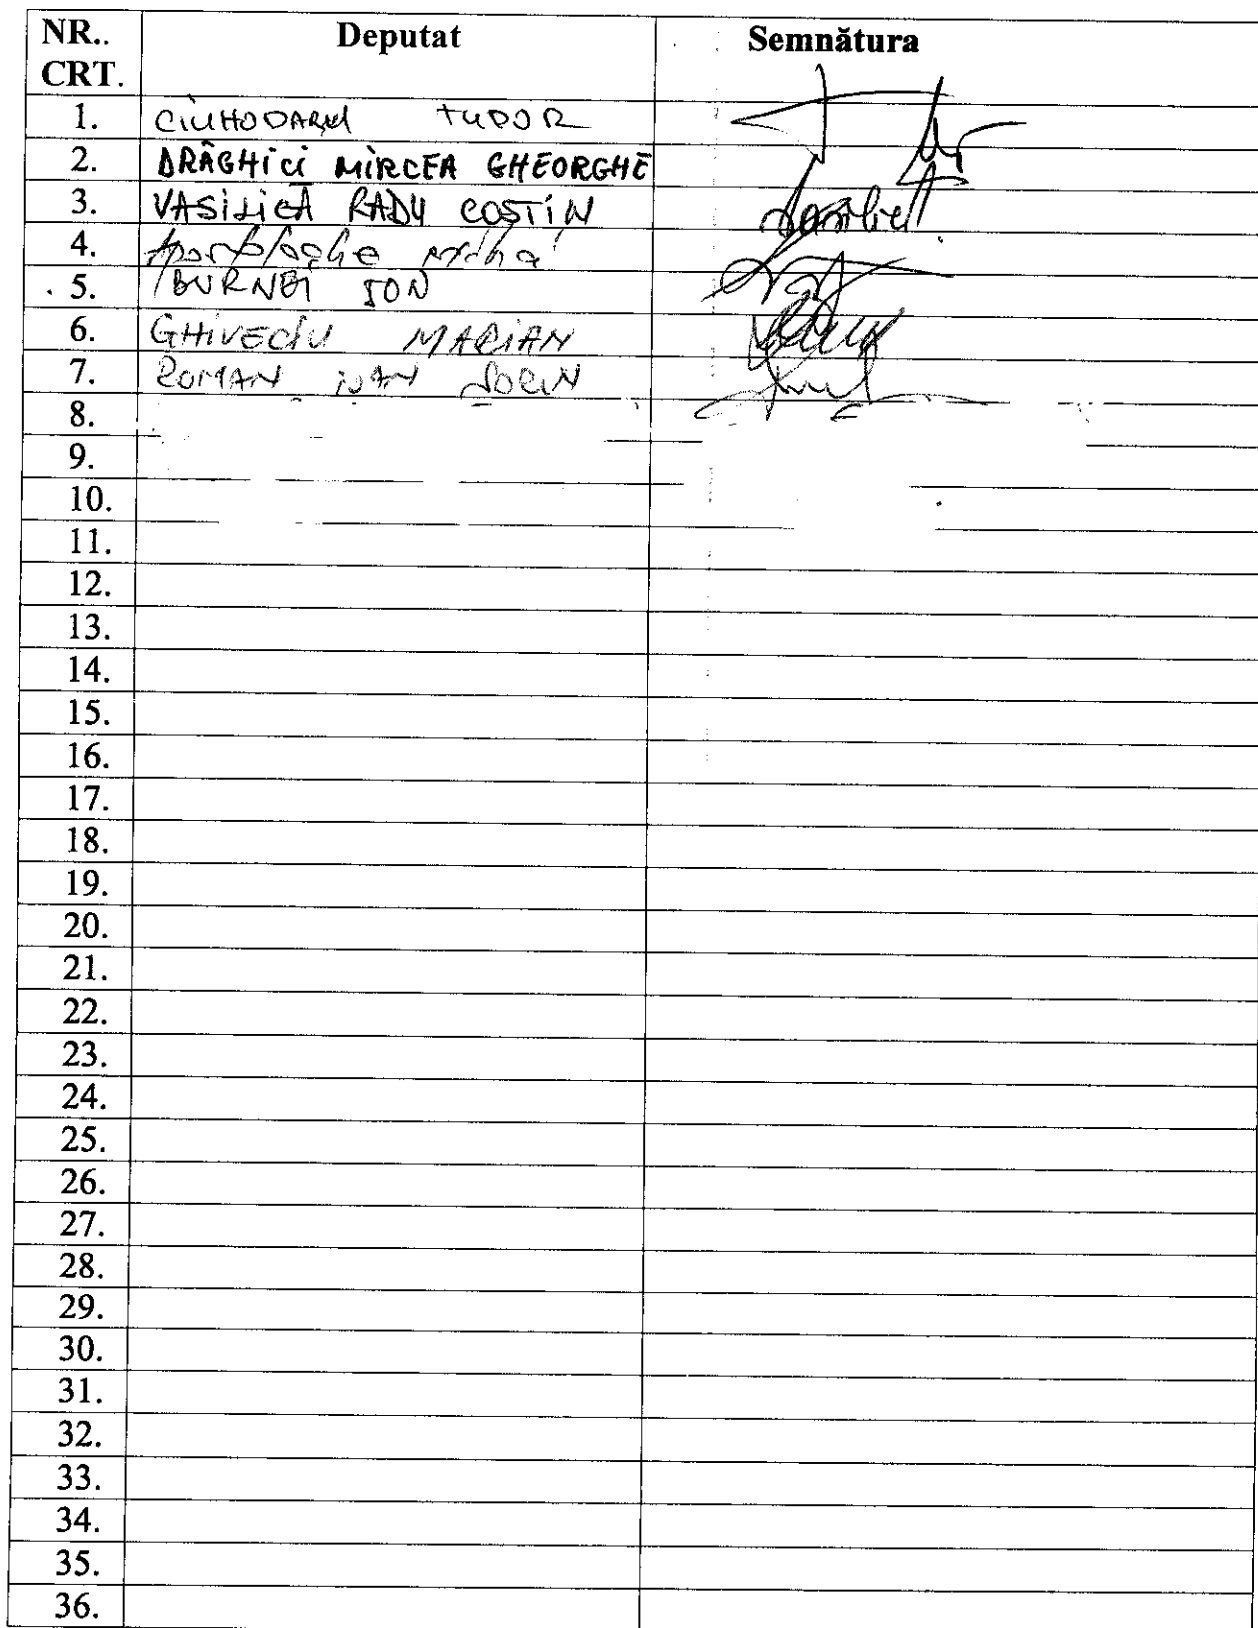 NR.. CRT. Deputat Semnătura
1. CIUHODARU TUDOR
2. DRĂGHICI MIRCEA GHEORGHE
3. VASILICĂ RADU COSTIN
4.
5. BURNEI ION
6. GHIVECIU MARIAN
7. ROMAN IOAN SORIN
8.
9.
10.
11.
12.
13.
14.
15.
16.
17.
18.
19.
20.
21.
22.
23.
24.
25.
26.
27.
28.
29.
30.
31.
32.
33.
34.
35.
36.